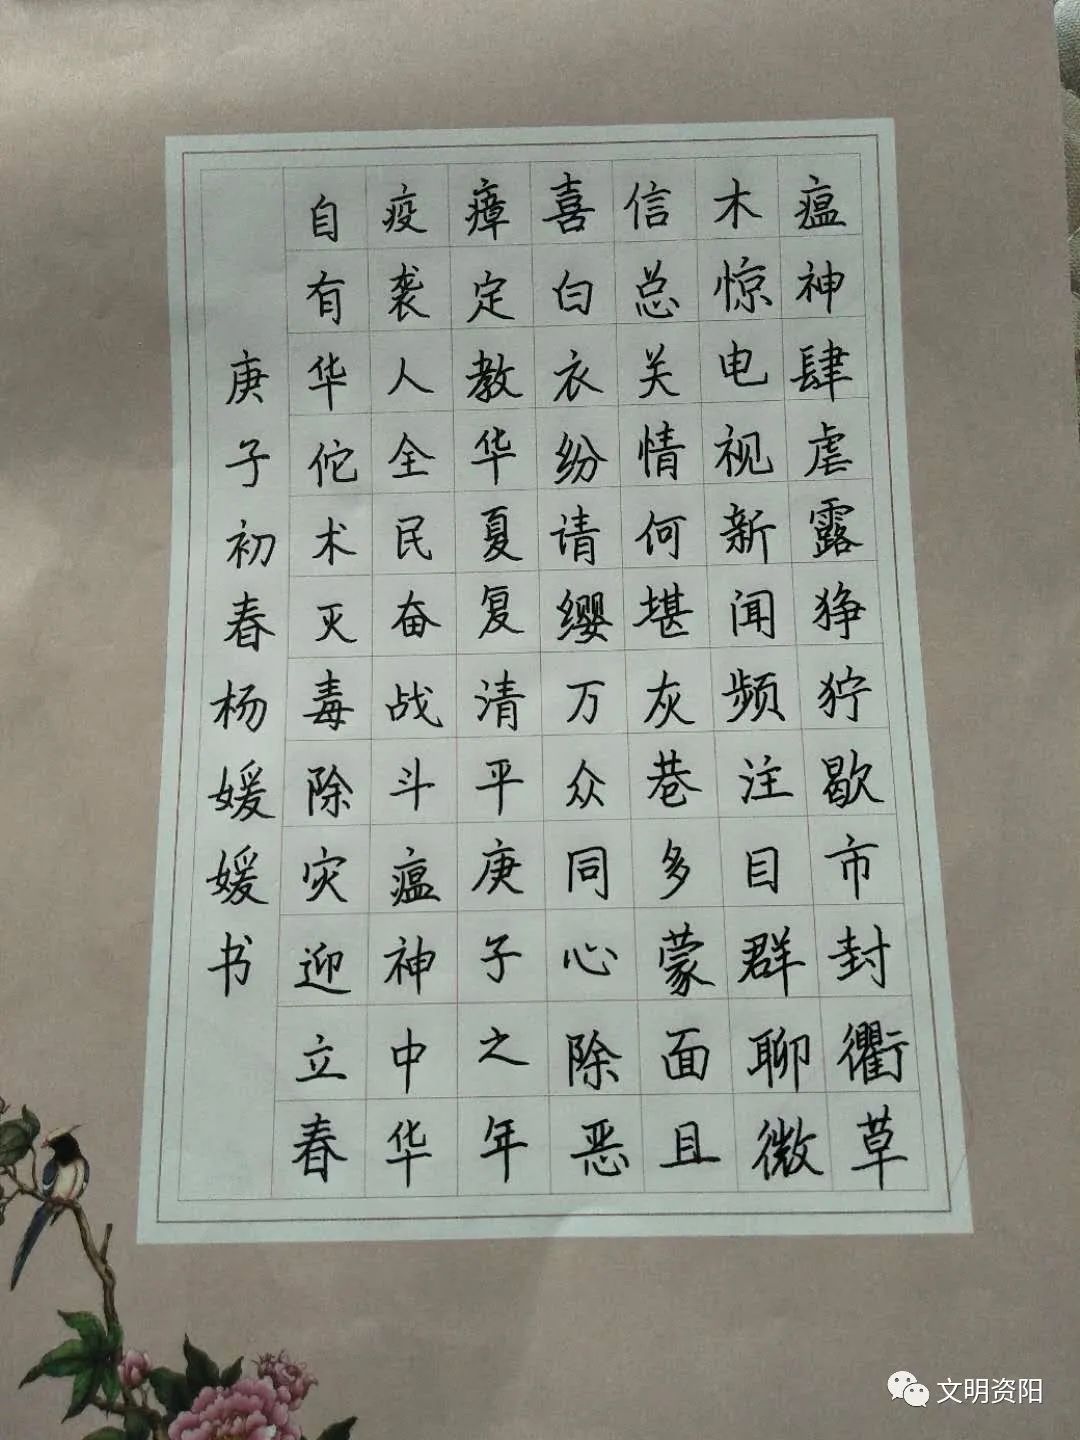 瘟神肆虐露狰狞歇市封衢草
木惊电视新闻频注目群聊微
信总关情何堪灰巷多蒙面且
喜白衣纷请缨万众同心除恶
瘴定教华夏复清平庚子之年
疫袭人全民奋战斗瘟神中华
自有华佗术灭毒除灾迎立春
庚子初春杨媛媛书
文明资阳